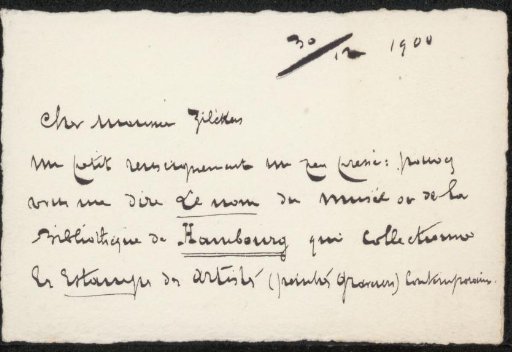 30/12 1900
Cher Monsieur Zilcken
un petit renseignement un peu pressé: pouvez
vous me dire Le nom du musée ou de la
Bibliothèque de Hambourg qui collectionne
les Estampes des artistes (peintres graveurs) contemporains.